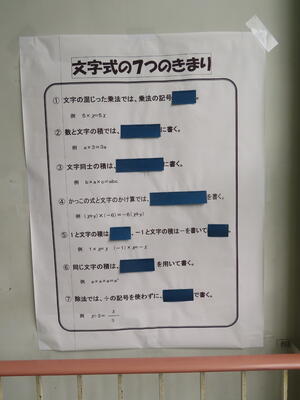 文字式の7つのきまり
① 文字の混じった乗法では、乗法の記号 。
例 5×y=5y
② 数と文字の積では、 に書く。
例 a×3=3a
③ 文字同士の積は、 に書く。
例 b×a×c=abc
④ かっこの式と文字のかけ算では、 を書く。
例 (x+y)×(-6)=-6(x+y)
⑤ 1と文字の積は 、-1と文字の積は-を書いて 。
例 1×y=y (-1)×x=-x
⑥ 同じ文字の積は、 を用いて書く。
例 a×a×a=a³
⑦ 除法では、÷の記号を使わずに、 で書く。